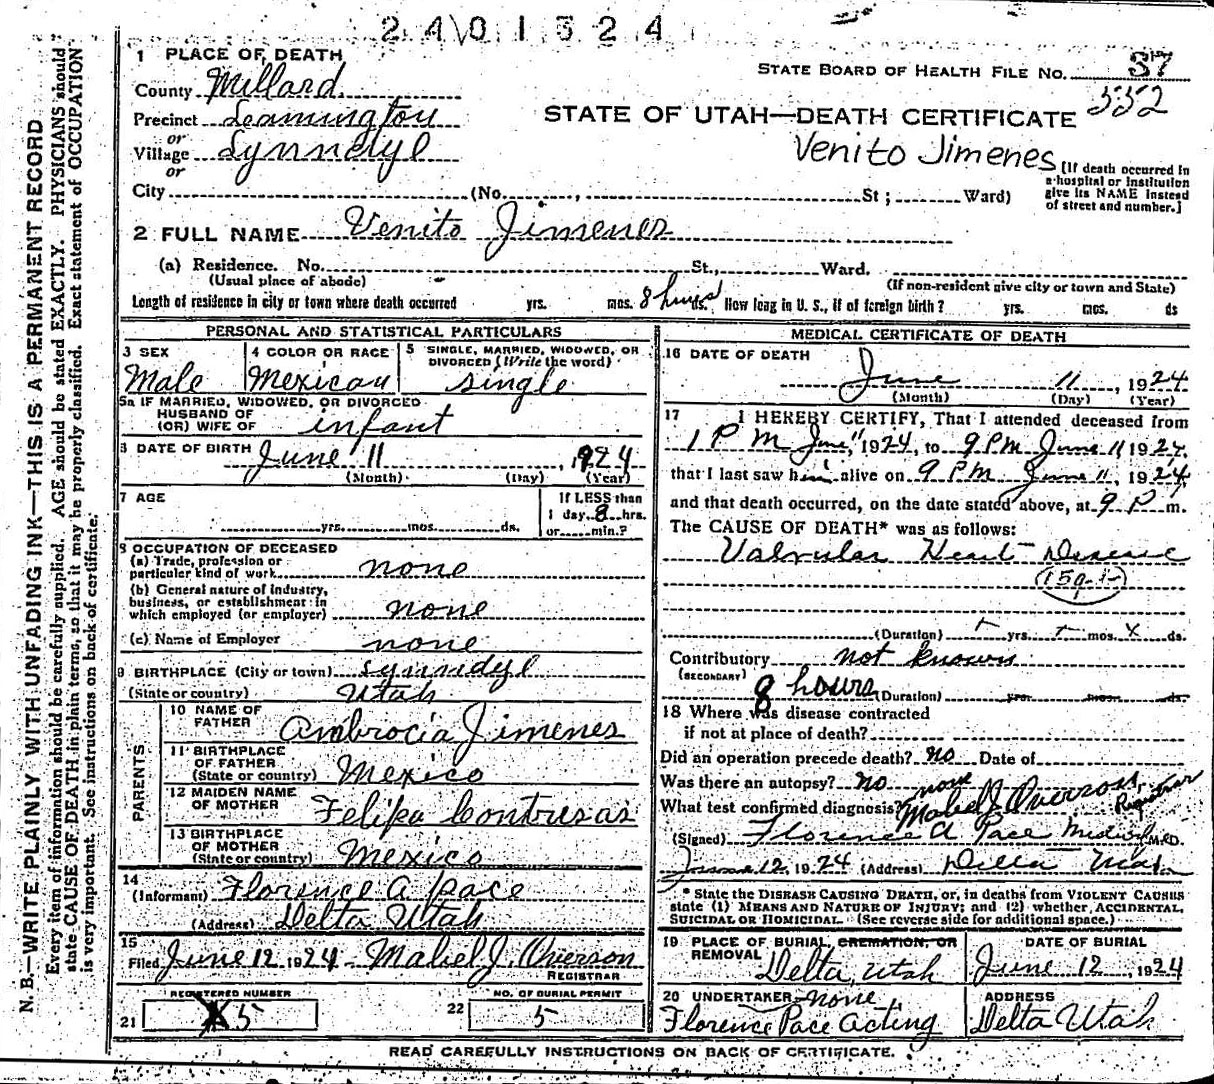 2401324
1 PLACE OF DEATH
County Millard
STATE BOARD OF HEALTH FILE NO. 37
552
Precinct Leamington
or
Village Lynndyl
or
STATE OF UTAH—DEATH CERTIFICATE
Venito Jimenes
City (No. , St ; Ward)
[If death occurred in
a hospital or institution
give its NAME instead
of street and number.]
2 FULL NAME Venito Jimenes
(a) Residence. No. St., Ward.
(Usual place of abode)
(If non-resident give city or town and State)
Length of residence in city or town where death occurred yrs. mos. 8 hours ds. How long in U. S., if of foreign birth? yrs. mos. ds
PERSONAL AND STATISTICAL PARTICULARS
3 SEX
Male
4 COLOR OR RACE
Mexican
5 SINGLE, MARRIED, WIDOWED, OR
DIVORCED (Write the word)
single
5a IF MARRIED, WIDOWED, OR DIVORCED
HUSBAND OF
(OR) WIFE OF infant
6 DATE OF BIRTH June 11, 1924
(Month) (Day) (Year)
7 AGE
yrs. mos. ds.
If LESS than
1 day 8 hrs.
or min.?
8 OCCUPATION OF DECEASED
(a) Trade, profession or
particular kind of work none
(b) General nature of industry,
business, or establishment in
which employed (or employer) none
(c) Name of Employer none
9 BIRTHPLACE (City or town) Lynndyl
(State or country) Utah
PARENTS
10 NAME OF
FATHER Ambrocia Jimenes
11 BIRTHPLACE
OF FATHER
(State or country) Mexico
12 MAIDEN NAME
OF MOTHER Felipa Contresas
13 BIRTHPLACE
OF MOTHER
(State or country) Mexico
14
(Informant) Florence A Pace
(Address) Delta Utah
15
Filed June 12 1924 Mabel J. Overson
REGISTRAR
REGISTERED NUMBER
21 5
NO. OF BURIAL PERMIT
22 5
MEDICAL CERTIFICATE OF DEATH
16 DATE OF DEATH
June 11, 1924
(Month) (Day) (Year)
17 I HEREBY CERTIFY, That I attended deceased from
1 P M June 11, 1924, to 9 P M June 11 1924,
that I last saw him alive on 9 P M June 11, 1924,
and that death occurred, on the date stated above, at 9 P m.
The CAUSE OF DEATH* was as follows:
Valvular Heart Disease
(Duration) yrs. mos. ds.
Contributory not known
(SECONDARY)
8 hours (Duration) yrs. mos. ds.
18 Where was disease contracted
if not at place of death?
Did an operation precede death? no Date of
Was there an autopsy? no
What test confirmed diagnosis? none
Mabel J Overson, Registrar
(Signed) Florence A Pace Midwife M.D.
June 12, 1924 (Address) Delta Utah
* State the DISEASE CAUSING DEATH, or, in deaths from VIOLENT CAUSES
state (1) MEANS AND NATURE OF INJURY; and (2) whether ACCIDENTAL,
SUICIDAL OR HOMICIDAL. (See reverse side for additional space.)
19 PLACE OF BURIAL, CREMATION, OR
REMOVAL Delta, Utah
DATE OF BURIAL
June 12, 1924
20 UNDERTAKER none
Florence Pace Acting
ADDRESS
Delta Utah
READ CAREFULLY INSTRUCTIONS ON BACK OF CERTIFICATE.
N. B.—WRITE PLAINLY WITH UNFADING INK—THIS IS A PERMANENT RECORD
Every item of information should be carefully supplied. AGE should be stated EXACTLY. PHYSICIANS should
state CAUSE OF DEATH in plain terms, so that it may be properly classified. Exact statement of OCCUPATION
is very important. See instructions on back of certificate.